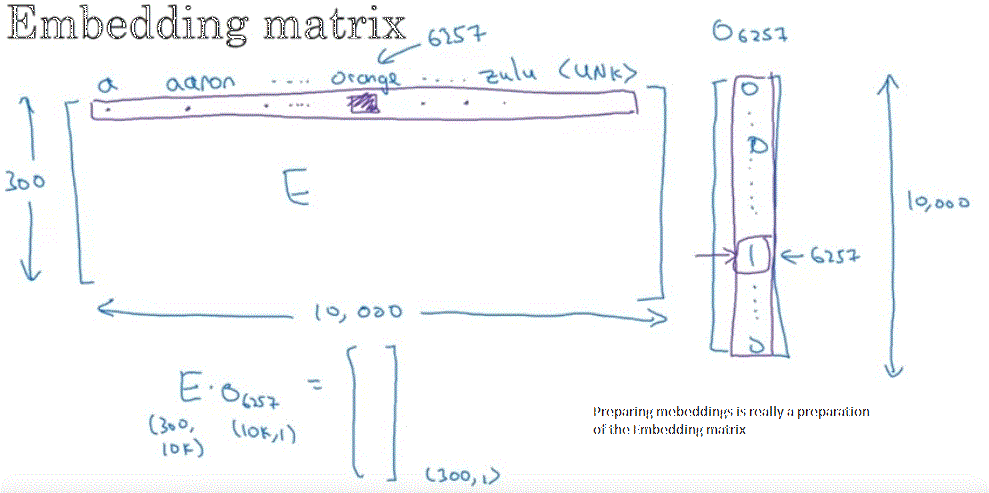 Embedding matrix
6257
O6257
a aaron .... orange .... zulu <UNK>
300
E
10,000
0
0
1
6257
0
10,000
E · O6257 =
(300, 10K)
(10K, 1)
(300, 1)
Preparing mebeddings is really a preparation
of the Embedding matrix